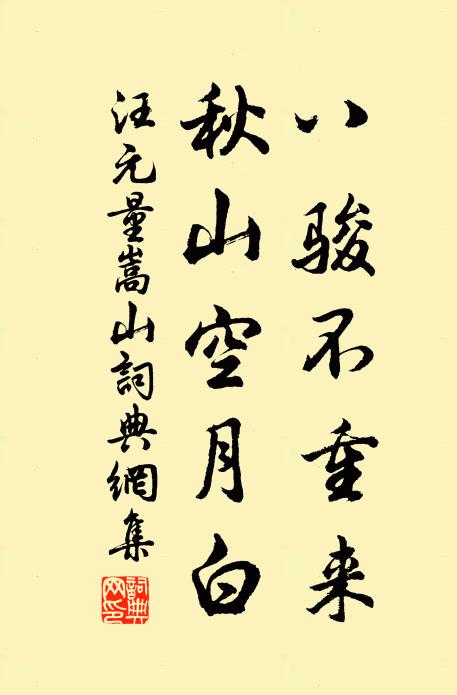 八骏不重来
秋山空月白
汪元量嵩山詞典網集
詞典網印